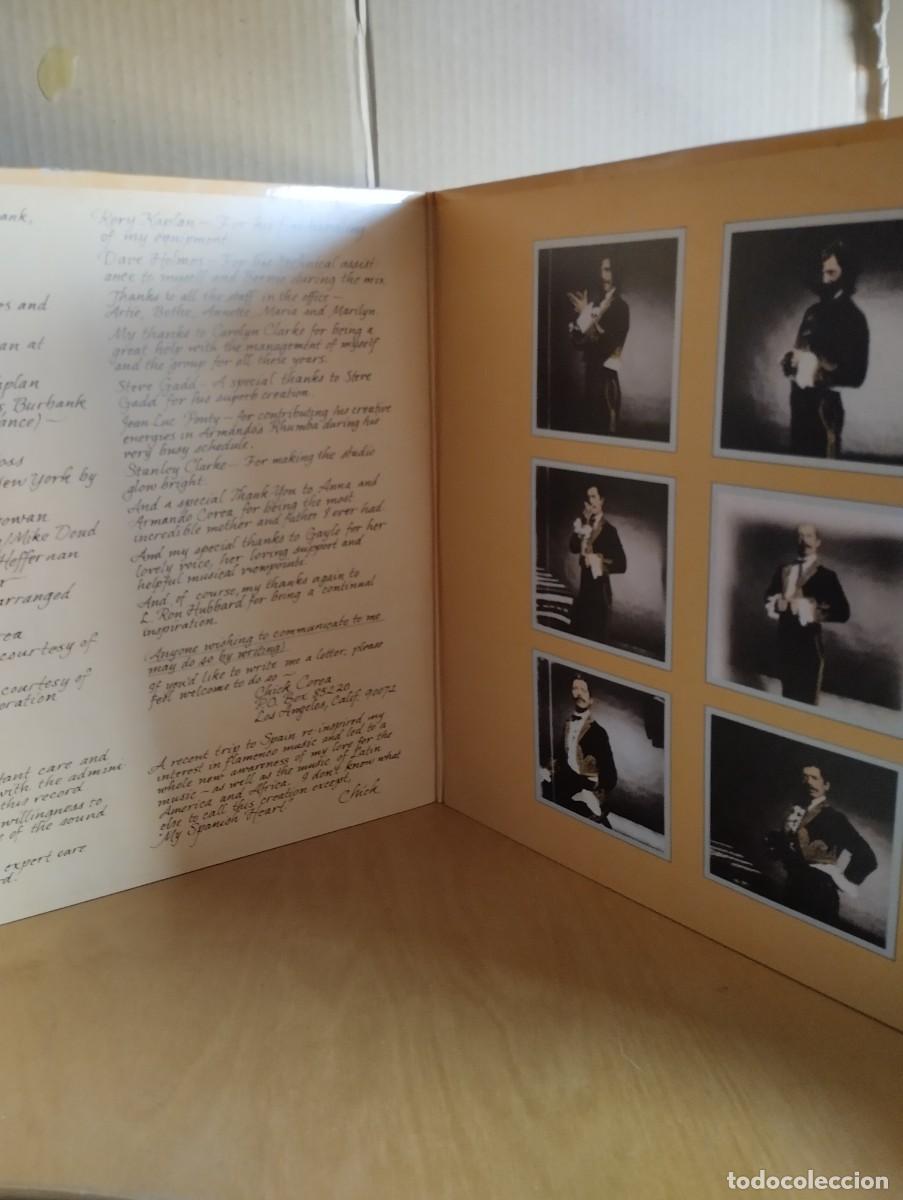 ank,
os and
an at
plan
s, Burbank
ance) —
oss
New York by
owan
e/Mike Doud
Heffernan
r —
arranged
rea
courtesy of
courtesy of
oration
tant care and
with the admini
this record
willingness to
e of the sound
expert care
rd.
Rory Kaplan — For his
of my equipment.
Dave Holmes — For his technical assist-
ance to myself and Bernie during the mix.
Thanks to all the staff in the office —
Artie, Bethe, Annette, Maria and Marilyn.
My thanks to Carolyn Clarke for being a
great help with the management of myself
and the group for all these years.
Steve Gadd — A special thanks to Steve
Gadd for his superb creation.
Jean-Luc Ponty — for contributing his creative
energies in Armando's Rhumba during his
very busy schedule.
Stanley Clarke — For making the studio
glow bright.
And a special Thank-You to Anna and
Armando Corea for being the most
incredible mother and father I ever had.
And my special thanks to Gayle for her
lovely voice, her loving support and
helpful musical viewpoints.
And, of course, my thanks again to
L. Ron Hubbard for being a continual
inspiration.
(Anyone wishing to communicate to me
may do so by writing)
If you'd like to write me a letter, please
feel welcome to do so —
Chick Corea
P.O. Box 85220
Los Angeles, Calif. 90072
A recent trip to Spain re-inspired my
interest in flamenco music and led to a
whole new awareness of my love for the
music — as well as the music of Latin
America and Africa. I don't know what
else to call this creation except,
"My Spanish Heart"
Chick
todocoleccion